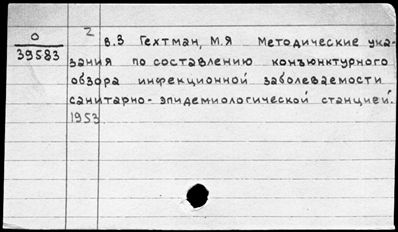 О
39583
2
в.3 Гехтман, М.Я Методические ука-
зания по составлению конъюнктурного
обзора инфекционной заболеваемости
санитарно-эпидемиологической станцией.
1953